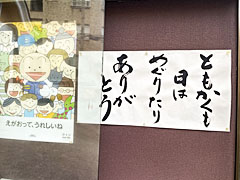 ともかくも
日は
めぐりたり
ありが
とう
えがおって、うれしいね